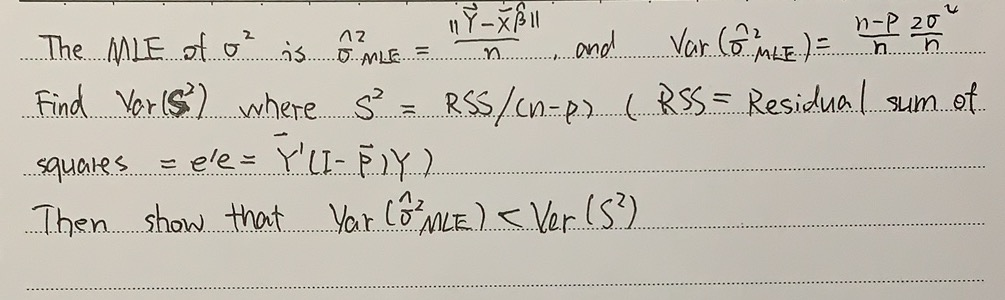 The MLE of σ² is σ̂²MLE = ||Y⃗ - X̄β̂|| / n , and Var(σ̂²MLE) = n-p/n 2σ⁴/n
Find Var(S²) where S² = RSS/(n-p) ( RSS = Residual sum of
squares = e'e = Ȳ'(I - P̄)Y )
Then show that Var(σ̂²MLE) < Ver(S²)